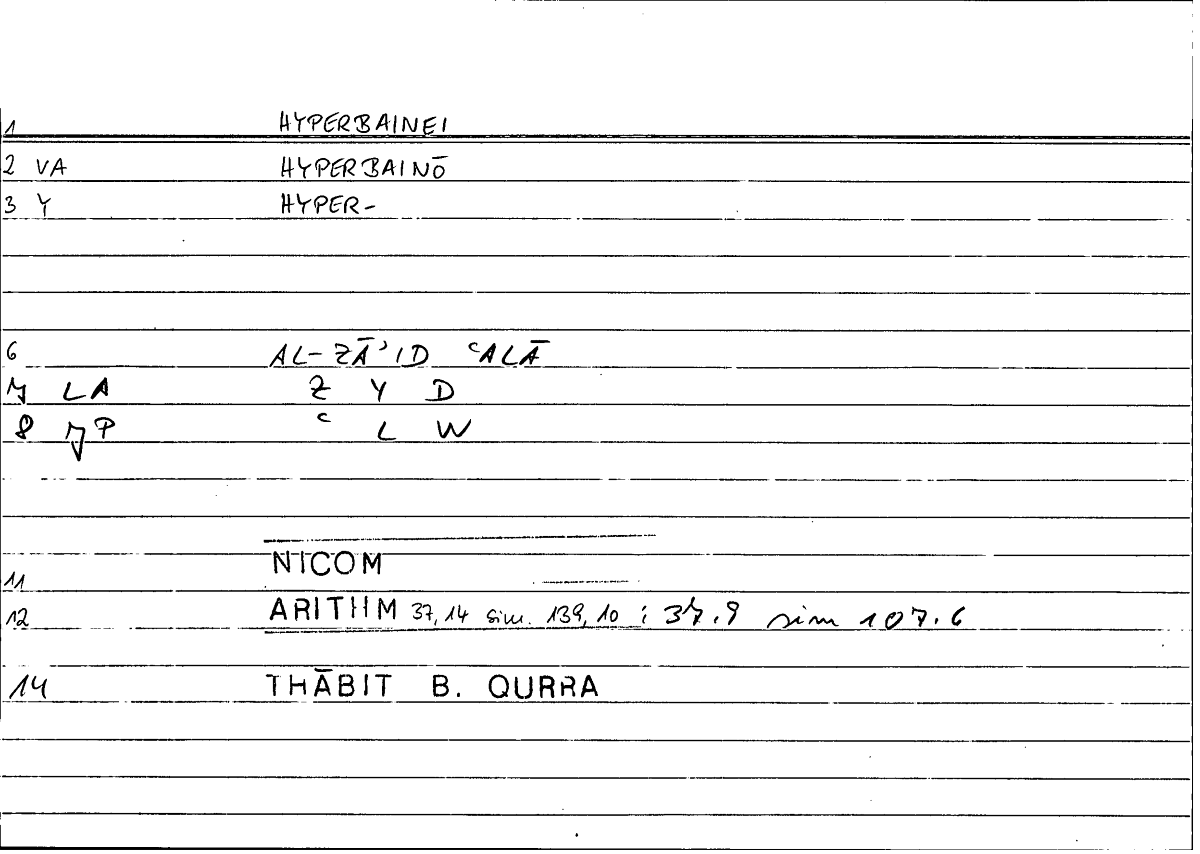 1 HYPERBAINEI
2 VA HYPERBAINŌ
3 Y HYPER-
6 AL-ZĀʾID ʿALĀ
7 LA Z Y D
8 JP ʿ L W
11 NICOM
12 ARITHM 37,14 sim. 139,10 : 37.9 sim 107.6
14 THĀBIT B. QURRA